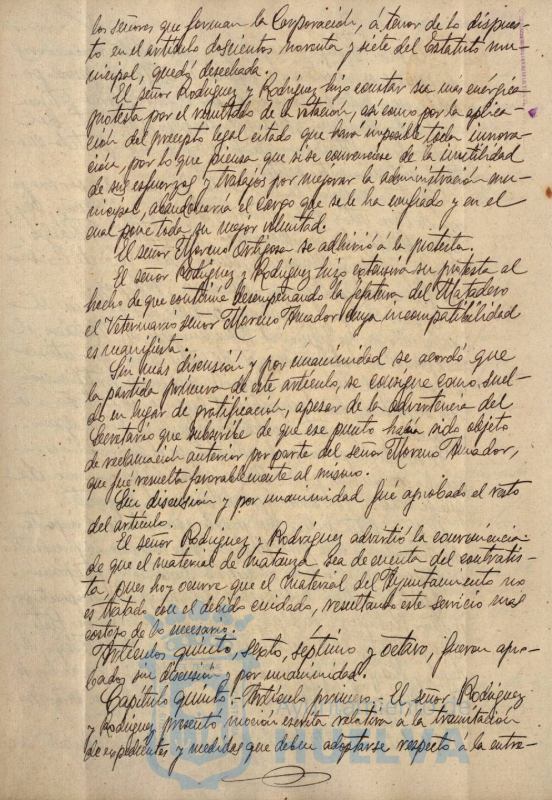 los señores que forman la Corporación, á tenor de lo dispues-
to en el artículo doscientos noventa y siete del Estatuto mu-
nicipal, quedó desechada.
El señor Rodríguez y Rodríguez hizo constar su más enérgica
protesta por el resultado de la votación, así como por la aplica-
ción del precepto legal citado que hace imposible toda innova-
ción, por lo que piensa que si se convenciese de la inutilidad
de sus esfuerzos y trabajos por mejorar la administración mu-
nicipal, abandonaría el cargo que se le ha confiado y en el
cual pone toda su mejor voluntad.
El señor Moreno Ortigosa se adhirió á la protesta.
El señor Rodríguez y Rodríguez hizo extensiva su protesta al
hecho de que continúe desempeñando la jefatura del Matadero
el Veterinario señor Moreno Amador cuya incompatibilidad
es manifiesta.
Sin más discusión y por unanimidad se acordó que
la partida primera de este artículo, se consigne como suel-
do en lugar de gratificación, apesar de la advertencia del
Secretario que suscribe de que ese punto había sido objeto
de reclamación anterior por parte del señor Moreno Amador,
que fué resuelta favorablemente al mismo.
Sin discusión y por unanimidad fué aprobado el resto
del artículo.
El señor Rodríguez y Rodríguez advirtió la conveniencia
de que el material de matanza sea de cuenta del contratis-
ta, pues hoy ocurre que el material del Ayuntamiento no
es tratado con el debido cuidado, resultando este servicio más
costoso de lo necesario.
Artículos quinto, sexto, séptimo y octavo, fueron apro-
bados sin discusión y por unanimidad.
Capítulo quinto - Artículo primero. - El señor Rodríguez
y Rodríguez presentó moción escrita relativa á la tramitación
de expedientes y medidas que deben adoptarse respecto á la entre-
HUELVA